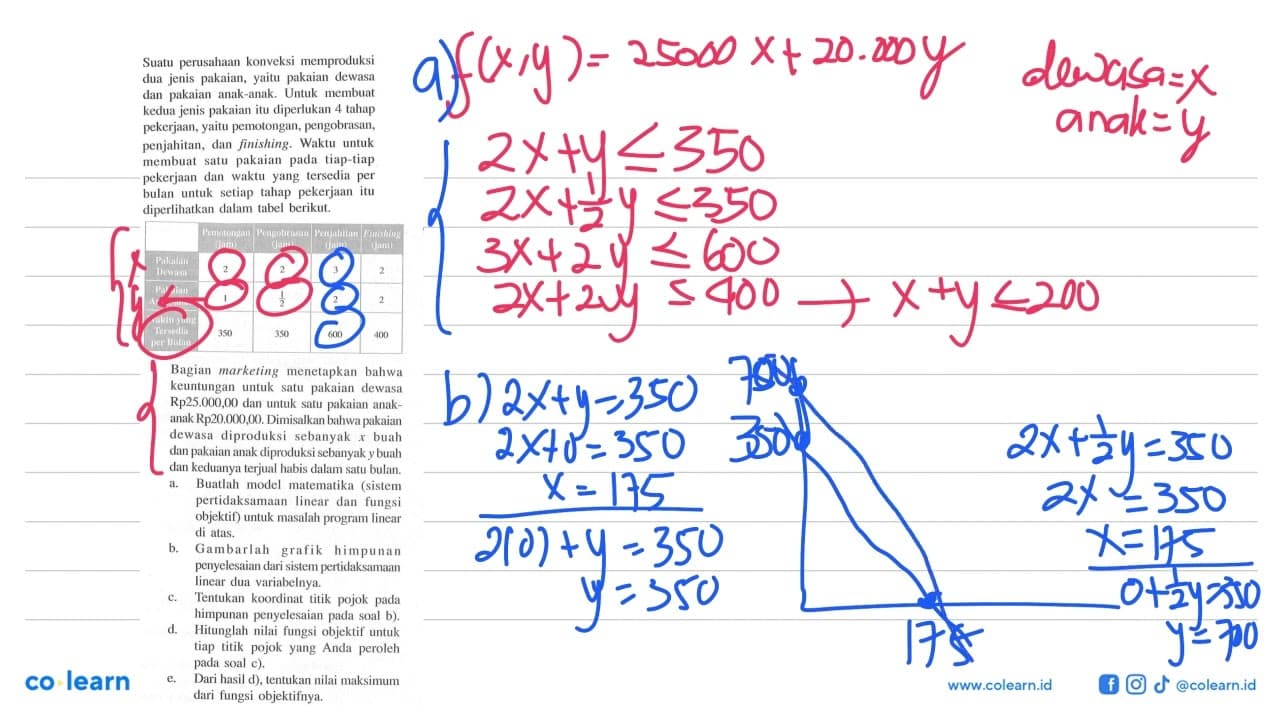 Suatu perusahaan konveksi memproduksi
dua jenis pakaian, yaitu pakaian dewasa
dan pakaian anak-anak. Untuk membuat
kedua jenis pakaian itu diperlukan 4 tahap
pekerjaan, yaitu pemotongan, pengobrasan,
penjahitan, dan finishing. Waktu untuk
membuat satu pakaian pada tiap-tiap
pekerjaan dan waktu yang tersedia per
bulan untuk setiap tahap pekerjaan itu
diperlihatkan dalam tabel berikut.
Pemotongan (Jam) Pengobrasan (Jam) Penjahitan (Jam) Finishing (Jam)
x Pakaian Dewasa 2 2 3 2
y Pakaian 1 1/2 2 2
Waktu yang Tersedia per Bulan 350 350 600 400
Bagian marketing menetapkan bahwa
keuntungan untuk satu pakaian dewasa
Rp25.000,00 dan untuk satu pakaian anak-
anak Rp20.000,00. Dimisalkan bahwa pakaian
dewasa diproduksi sebanyak x buah
dan pakaian anak diproduksi sebanyak y buah
dan keduanya terjual habis dalam satu bulan.
a. Buatlah model matematika (sistem
pertidaksamaan linear dan fungsi
objektif) untuk masalah program linear
di atas.
b. Gambarlah grafik himpunan
penyelesaian dari sistem pertidaksamaan
linear dua variabelnya.
c. Tentukan koordinat titik pojok pada
himpunan penyelesaian pada soal b).
d. Hitunglah nilai fungsi objektif untuk
tiap titik pojok yang Anda peroleh
pada soal c).
e. Dari hasil d), tentukan nilai maksimum
dari fungsi objektifnya.
a) f(x,y) = 25000 x + 20.000 y
dewasa = x
anak = y
2x + y ≤ 350
2x + 1/2 y ≤ 350
3x + 2y ≤ 600
2x + 2y ≤ 400 → x + y ≤ 200
b) 2x + y = 350
2x + 0 = 350
x = 175
2(0) + y = 350
y = 350
700
350
175
2x + 1/2 y = 350
2x = 350
x = 175
0 + 1/2 y = 350
y = 700
co learn
www.colearn.id
@colearn.id